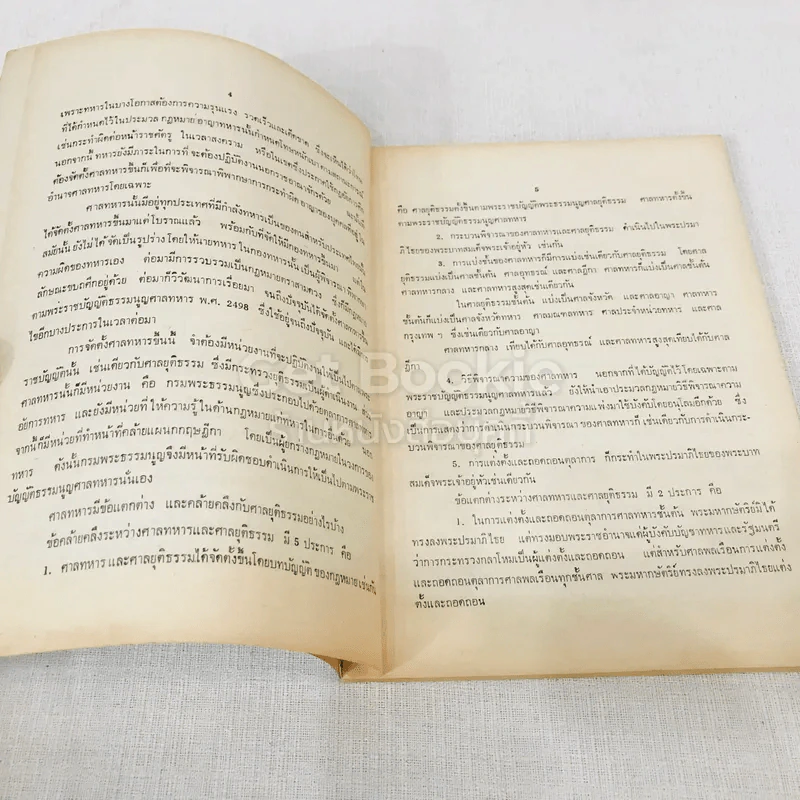 4
เพราะทหารในบางโอกาสต้องการความรุนแรง รวดเร็วและเด็ดขาด
ที่ได้กำหนดไว้ในประมวลกฎหมายอาญาทหารนั้นกำหนดโทษหนักเบา
เช่นกระทำผิดต่อหน้าราชศัตรู ในเวลาสงคราม หรือในเขตซึ่งประกาศใช้กฎอัยการศึก
นอกจากนี้ ทหารยังมีภาระในการที่จะต้องปฏิบัติงานนอกราชอาณาจักรด้วย
ต้องจัดตั้งศาลทหารขึ้นก็เพื่อที่จะพิจารณาพิพากษาการกระทำผิดอาญาของบุคคลที่อยู่ใน
อำนาจศาลทหารโดยเฉพาะ
ศาลทหารนั้นมีอยู่ทุกประเทศที่มีกำลังทหารเป็นของตนสำหรับประเทศไทย
ได้จัดตั้งศาลทหารขึ้นมาแต่โบราณแล้ว พร้อมกับที่จัดให้มีกองทหารขึ้นมา แต่ใน
สมัยนั้นยังไม่ได้จัดเป็นรูปร่าง โดยให้นายทหารในกองทหารนั้น เป็นผู้พิจารณา
ความผิดของทหารเอง ต่อมามีการรวบรวมเป็นกฎหมายตราสามดวง ซึ่งก็มี
ลักษณะขบถศึกอยู่ด้วย ต่อมาก็วิวัฒนาการเรื่อยมา จนถึงปัจจุบันได้จัดตั้งศาลทหารขึ้น
ตามพระราชบัญญัติธรรมนูญศาลทหาร พ.ศ. 2498 ซึ่งใช้อยู่จนถึงปัจจุบัน และได้แก้
ไขอีกบางประการในเวลาต่อมา
การจัดตั้งศาลทหารขึ้นนี้ จำต้องมีหน่วยงานที่จะปฏิบัติงานให้เป็นไปตามพระ
ราชบัญญัตินั้น เช่นเดียวกับศาลยุติธรรม ซึ่งมีกระทรวงยุติธรรมเป็นผู้ดำเนินงาน
ศาลทหารนั้นก็มีหน่วยงาน คือ กรมพระธรรมนูญซึ่งประกอบไปด้วยตุลาการทหาร
อัยการทหาร และยังมีหน่วยที่ให้ความรู้ในด้านกฎหมายแก่ทหารในกองทัพด้วย นอก
จากนี้ก็มีหน่วยที่ทำหน้าที่คล้ายแผนกกฤษฎีกา โดยเป็นผู้ยกร่างกฎหมายในวงการ
ทหาร ดังนั้นกรมพระธรรมนูญจึงมีหน้าที่รับผิดชอบดำเนินการให้เป็นไปตามพระราช
บัญญัติธรรมนูญศาลทหารนั่นเอง
ศาลทหารมีข้อแตกต่าง และคล้ายคลึงกับศาลยุติธรรมอย่างไรบ้าง
ข้อคล้ายคลึงระหว่างศาลทหารและศาลยุติธรรม มี 5 ประการ คือ
1. ศาลทหารและศาลยุติธรรมได้จัดตั้งขึ้นโดยบทบัญญัติของกฎหมายเช่นกัน
5
คือ ศาลยุติธรรมตั้งขึ้นตามพระราชบัญญัติพระธรรมนูญศาลยุติธรรม ศาลทหารตั้งขึ้น
ตามพระราชบัญญัติธรรมนูญศาลทหาร
2. กระบวนพิจารณาของศาลทหารและศาลยุติธรรม ดำเนินไปในพระปรมา
ภิไธยของพระบาทสมเด็จพระเจ้าอยู่หัว เช่นกัน
3. การแบ่งชั้นของศาลทหารก็มีการแบ่งเช่นเดียวกับศาลยุติธรรม โดยศาล
ยุติธรรมแบ่งเป็นศาลชั้นต้น ศาลอุทธรณ์ และศาลฎีกา ศาลทหารก็แบ่งเป็นศาลชั้นต้น
ศาลทหารกลาง และศาลทหารสูงสุดเช่นเดียวกัน
ในศาลยุติธรรมชั้นต้น แบ่งเป็นศาลจังหวัด และศาลอาญา ศาลทหาร
ชั้นต้นก็แบ่งเป็นศาลจังหวัดทหาร ศาลมณฑลทหาร ศาลประจำหน่วยทหาร และศาลทหาร
กรุงเทพ ฯ ซึ่งเช่นเดียวกับศาลอาญา
ศาลทหารกลาง เทียบได้กับศาลอุทธรณ์ และศาลทหารสูงสุดเทียบได้กับศาล
ฎีกา
4. วิธีพิจารณาความของศาลทหาร นอกจากที่ได้บัญญัติไว้โดยเฉพาะตาม
พระราชบัญญัติธรรมนูญศาลทหารแล้ว ยังให้นำเอาประมวลกฎหมายวิธีพิจารณาความ
อาญา และประมวลกฎหมายวิธีพิจารณาความแพ่งมาใช้บังคับโดยอนุโลมอีกด้วย ซึ่ง
เป็นการแสดงว่าการดำเนินกระบวนพิจารณาของศาลทหารก็เช่นเดียวกับการดำเนินกระ-
บวนพิจารณาของศาลยุติธรรม
5. การแต่งตั้งและถอดถอนตุลาการ ก็กระทำในพระปรมาภิไธยของพระบาท
สมเด็จพระเจ้าอยู่หัวเช่นเดียวกัน
ข้อแตกต่างระหว่างศาลทหารและศาลยุติธรรม มี 2 ประการ คือ
1. ในการแต่งตั้งและถอดถอนตุลาการศาลทหารชั้นต้น พระมหากษัตริย์มิได้
ทรงลงพระปรมาภิไธย แต่ทรงมอบพระราชอำนาจแก่ผู้บังคับบัญชาทหารและรัฐมนตรี
ว่าการกระทรวงกลาโหมเป็นผู้แต่งตั้งและถอดถอน แต่สำหรับศาลพลเรือนการแต่งตั้ง
และถอดถอนตุลาการศาลพลเรือนทุกชั้นศาล พระมหากษัตริย์ทรงลงพระปรมาภิไธยแต่ง
ตั้งและถอดถอน